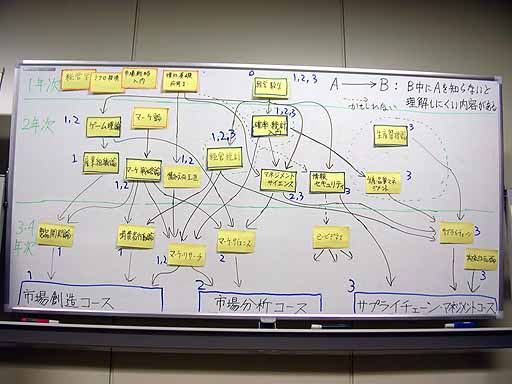 1年次
経営学
市場戦略
入門
経営数学
0
1, 2, 3
A → B : B中にAを知らないと
理解しにくい内容がある
かもしれない
2年次
1,2
ゲーム理論
マーケ論
1,2,3
確率・統計
入門
1,2,3
生産管理論
3
1
産業組織論
マーケ戦略論
1,2
1,2
経営統計
マネジメント
サイエンス
2,3
情報
セキュリティ
3
3
3・4
年次
1
消費者行動論
1
マーケリサーチ
1,2
マーケサイエンス
2
e-ビジネス
サプライチェーン
3
3
1
市場創造コース
2
市場分析コース
3
サプライチェーン・マネジメントコース